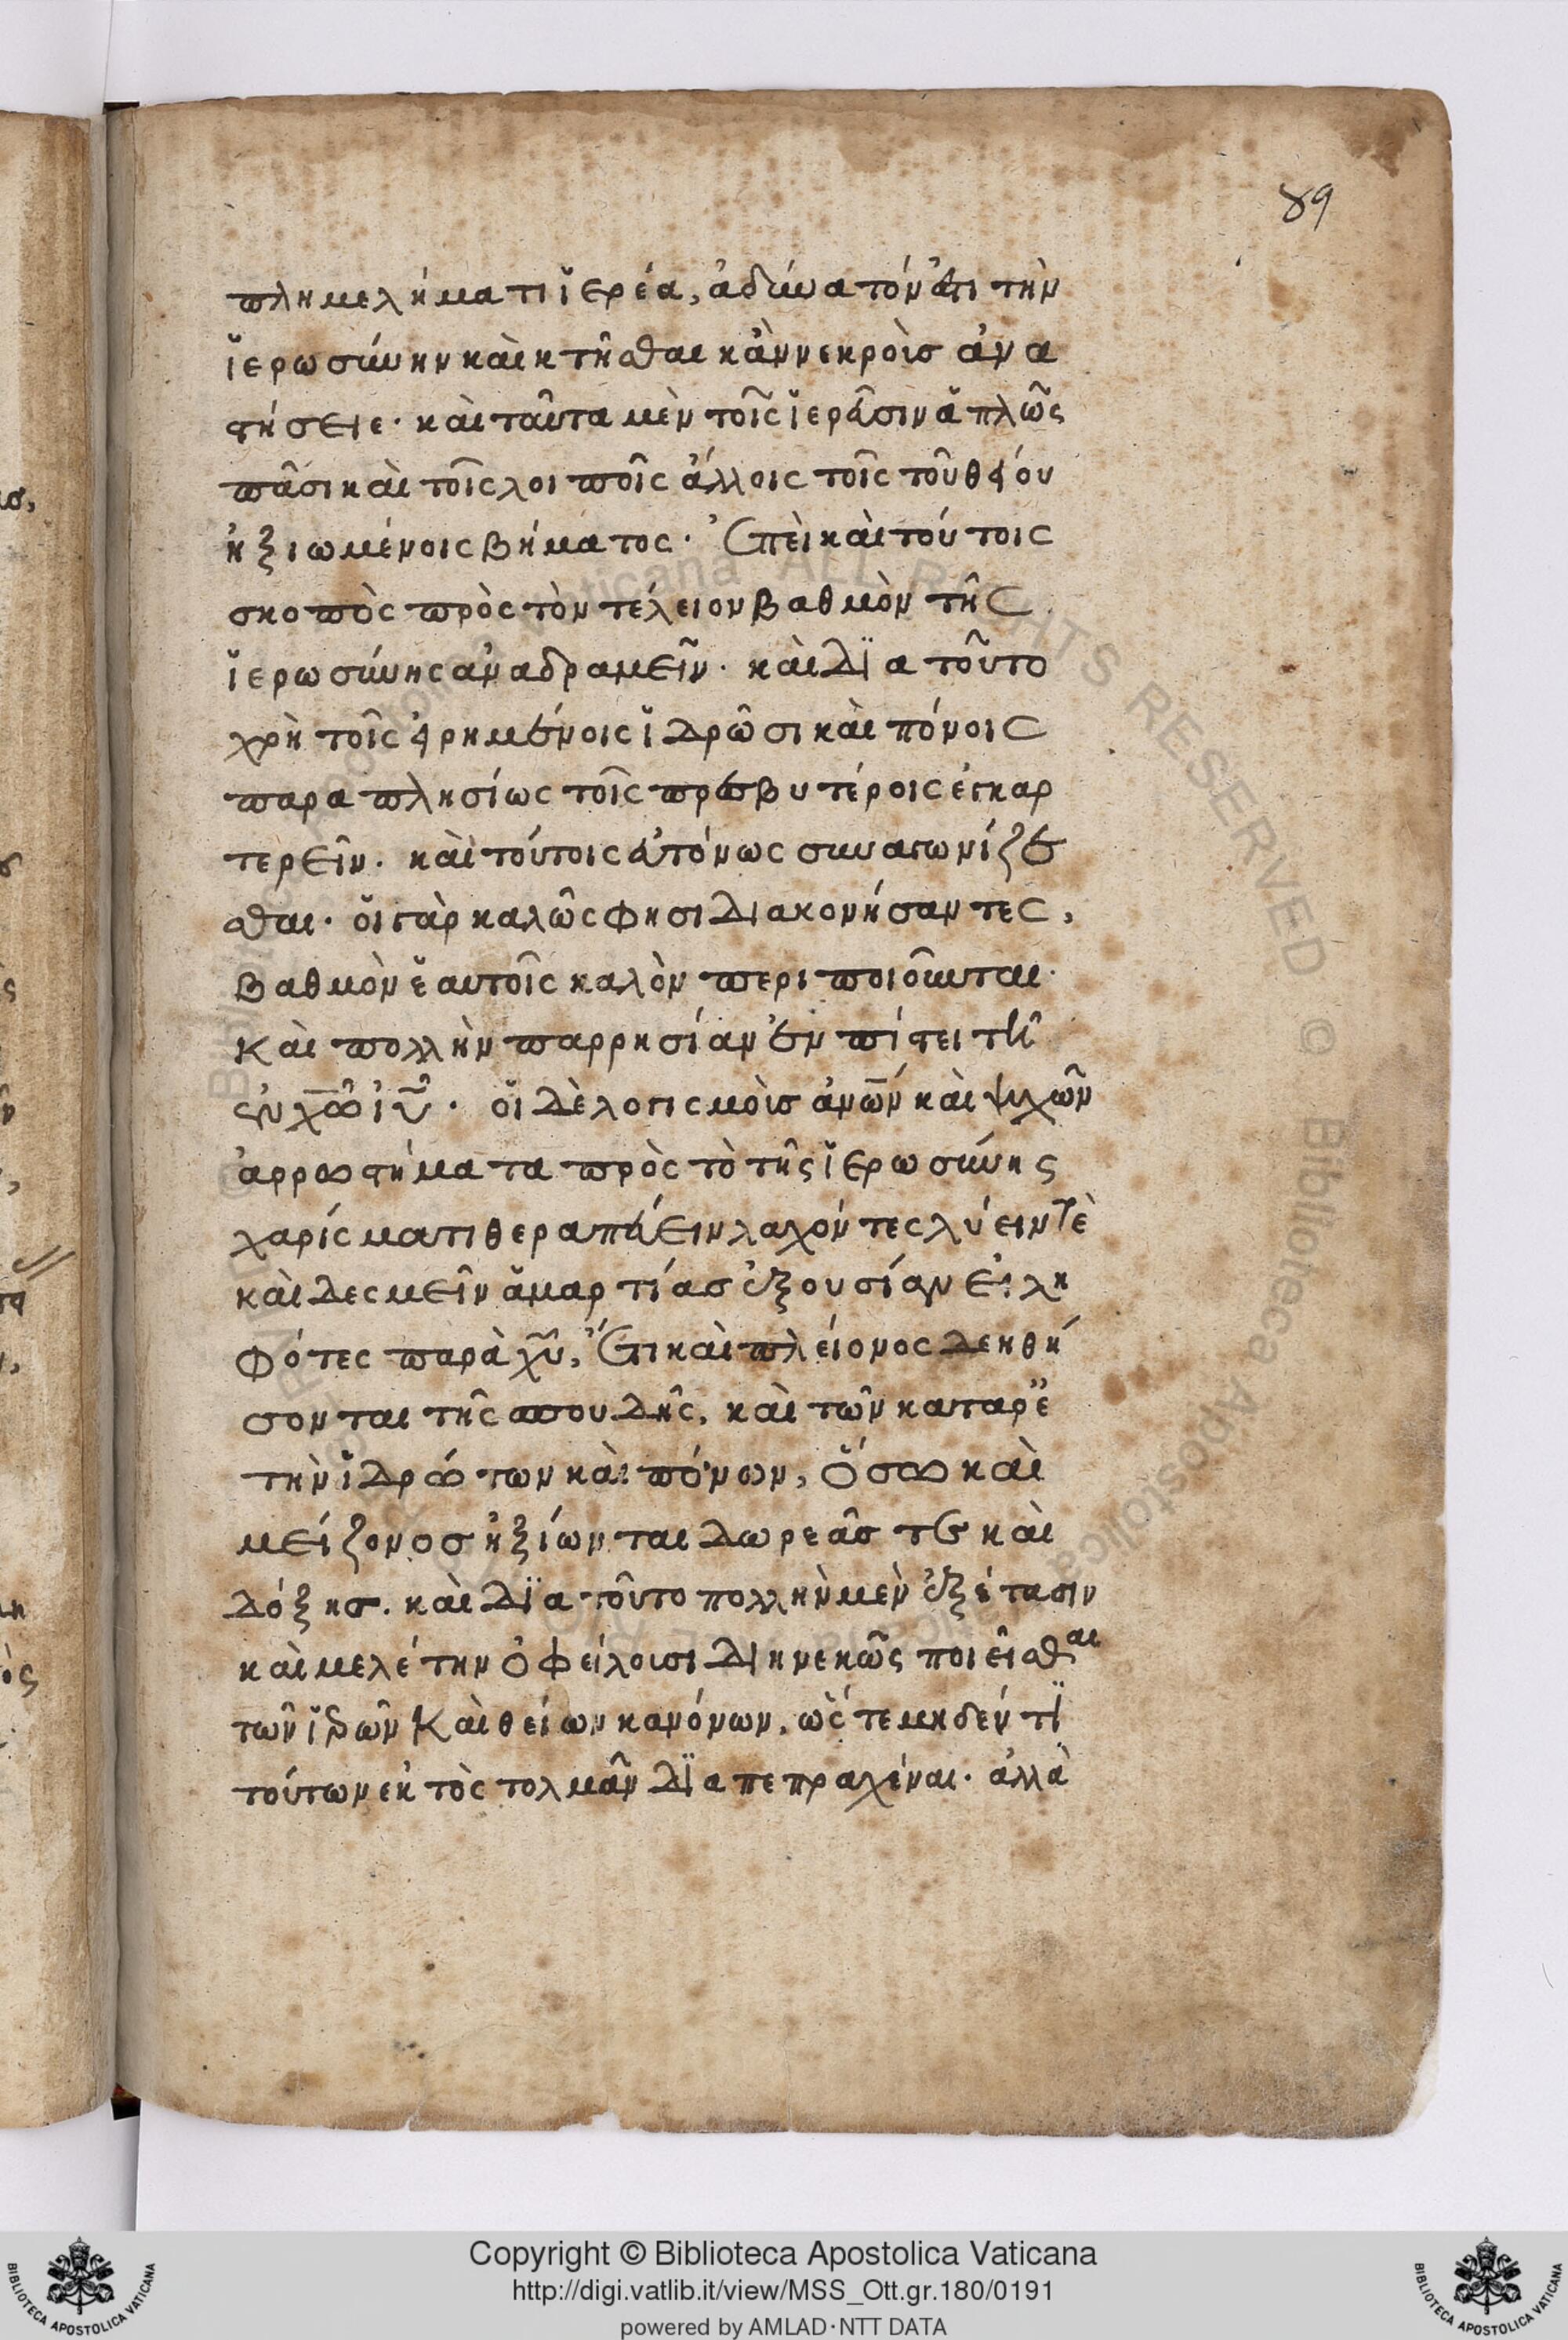 89
πλημμελήματι ἱερέα, ἀδύνατον ἔτι τὴν
ἱερωσύνην κὰι κτῆσθαι κἂν νεκροὶσ ἀνα
στήσειε· κὰι ταῦτα μὲν τοῖς ἱερᾶσιν ἁπλῶς
πᾶσι κὰι τοῖς λοιποῖς ἄλλοις τοῖς τοῦ θείου
ἠξιωμένοις βήματος· Ἐπεὶ κὰι τούτοις
σκοπὸς πρὸς τὸν τέλειον βαθμὸν τῆς
ἱερωσύνης ἀναδραμεῖν· κὰι δϊα τοῦτο
χρὴ τοῖς εἰρημένοις ἱδρῶσι κὰι πόνοις
παραπλησίως τοῖς πρεσβυτέροις ἐγκαρ
τερεῖν· κὰι τούτοις εὐτόνως συναγωνίζε
σθαι· οἱ γὰρ καλῶς φησι διακονήσαντες,
βαθμὸν ἑαυτοῖς καλὸν περιποιοῦνται·
Κὰι πολλὴν παρρησίαν ἐν πίστει τῆ
ἐν χω ιυ· οἱ δὲ λογισμοὶσ ἀνων κὰι ψυχῶν
ἀρρωστήματα πρὸς τὸ τῆς ἱερωσύνης
χαρίσματι θεραπεύειν λαχόντες λύειν τὲ
κὰι δεσμεῖν ἁμαρτίασ ἐξουσίαν εἰλη
φότες παρὰ χυ, Ἔτι κὰι πλείονος δεηθή
σονται τῆς σπουδῆς, κὰι τῶν κατ' ἀρε
τὴν ἱδρώτων κὰι πόνων, ὅσω κὰι
μείζονοσ ἠξίωνται δωρεᾶσ τε κὰι
δόξησ. κὰι δϊα τοῦτο πολλὴν μὲν ἐξέτασιν
κὰι μελέτην ὀφείλουσι διηνεκῶς ποιεῖσθαι
τῶν ἱρῶν Κὰι θείων κανόνων, ὥστε μηδέν τϊ
τούτων ἐκτὸς τολμᾶν δϊαπεπραχέναι· ἀλλὰ
Copyright © Biblioteca Apostolica Vaticana
http://digi.vatlib.it/view/MSS_Ott.gr.180/0191
powered by AMLAD·NTT DATA